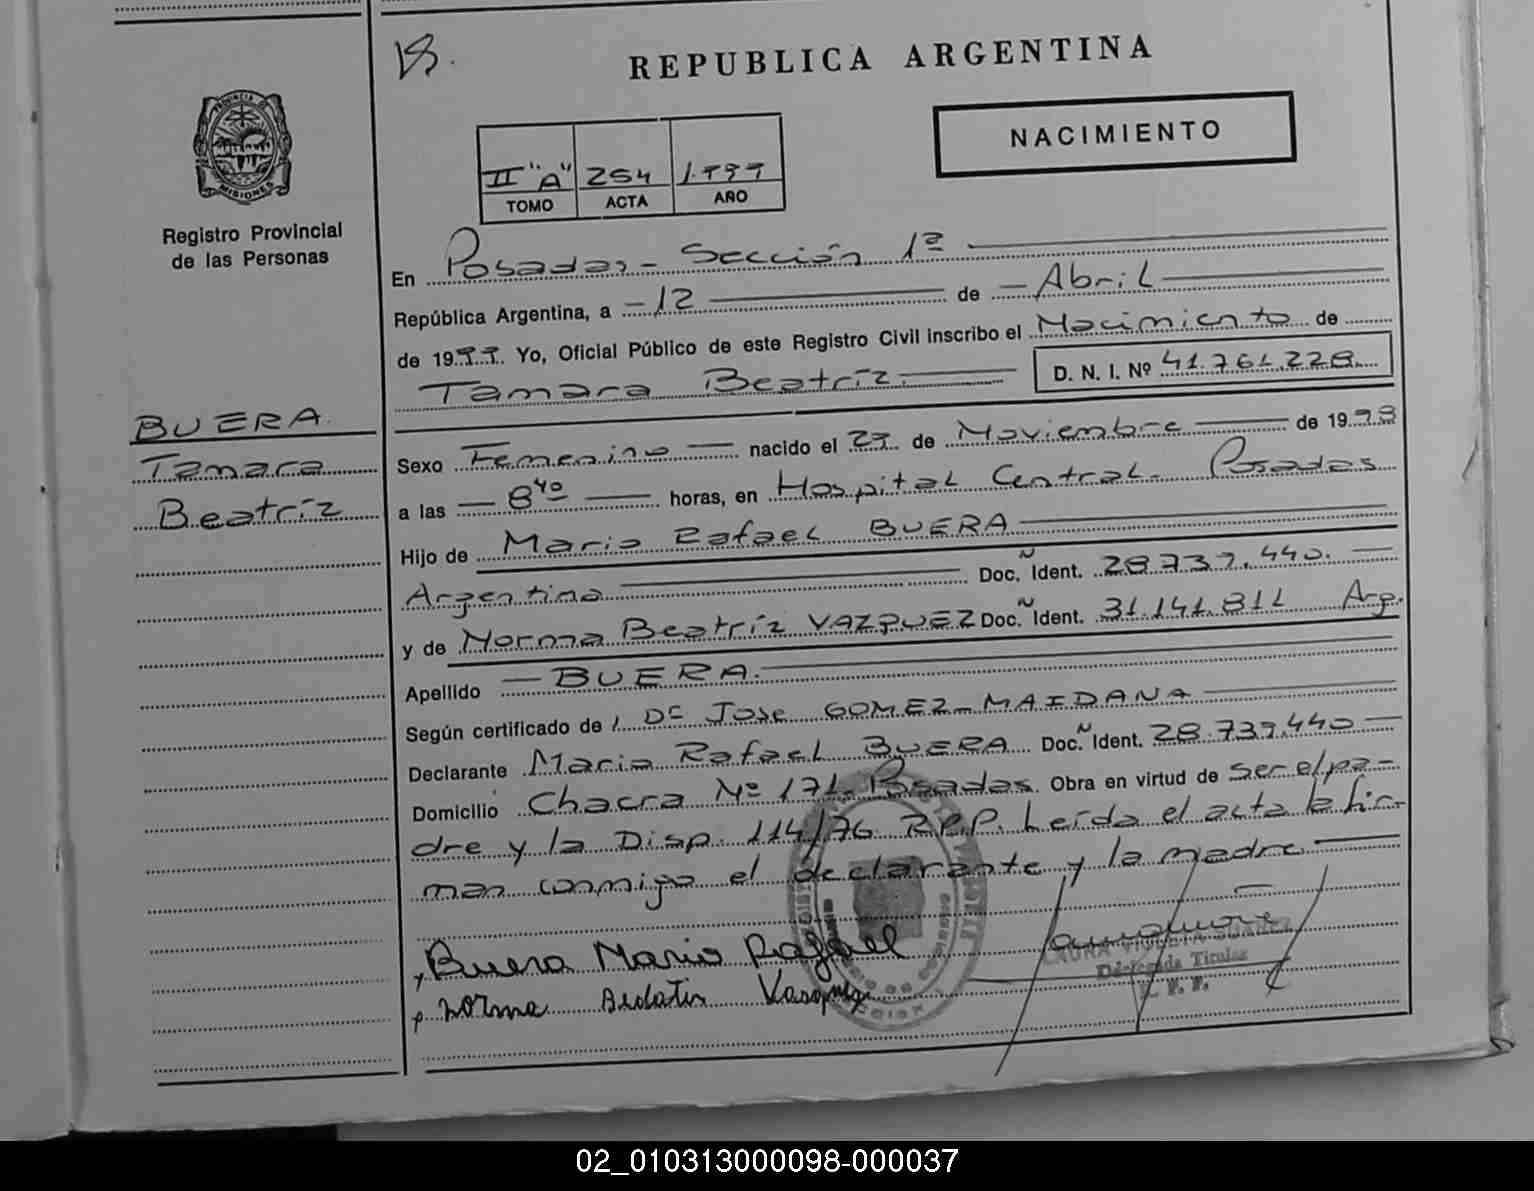 REPUBLICA ARGENTINA
PROVINCIA DE MISIONES
Registro Provincial
de las Personas
NACIMIENTO
II "A" 254 1.999
TOMO ACTA AÑO
En Posadas - Sección 1ª
República Argentina, a - 12 de - Abril
de 1999. Yo, Oficial Público de este Registro Civil inscribo el Nacimiento de
Tamara Beatríz. D. N. I. Nº 41.761.228.
BUERA
Tamara
Beatríz
Sexo Femenino nacido el 27 de Noviembre de 1998
a las 8 40 horas, en Hospital Central - Posadas
Hijo de Mario Rafael BUERA
Argentino Doc. Ñ Ident. 28.739.440.
y de Norma Beatríz VAZQUEZ Doc. Ñ Ident. 31.141.811 Arg.
Apellido - BUERA.
Según certificado de Dr Jose GOMEZ - MAIDANA
Declarante Mario Rafael BUERA Doc. Ñ Ident. 28.739.440
Domicilio Chacra Nº 171. Posadas. Obra en virtud de ser el pa-
dre y la Disp. 114/76 R.P.P. Leída el acta la fir-
man conmigo el declarante y la madre.
Buera Mario Rafael
Norma Vasquez
LAURA SUAREZ
Delegada Titular
R. P. P.
02_010313000098-000037